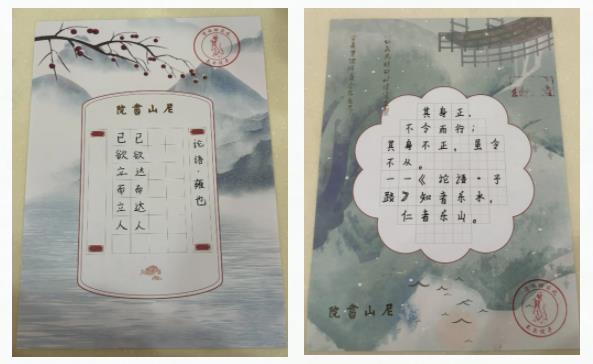 尼山書院
己欲立而立人
己欲达而达人
论语·雍也
其身正，
不令而行；
其身不正，虽令
不从。
——《论语·子
路》知者乐水，
仁者乐山。
尼山書院